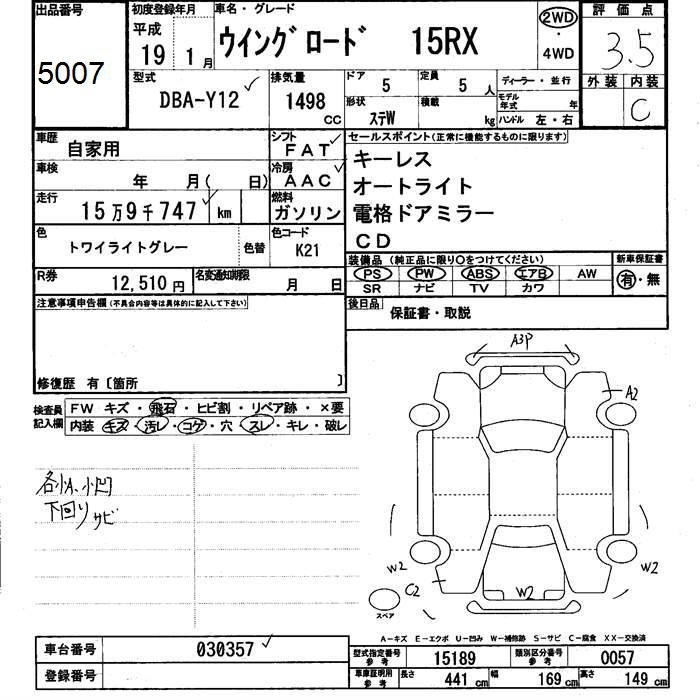 出品番号
5007
初度登録年月
平成
19 1月
車名・グレード
ウイングロード 15RX
2WD
・
4WD
評価点
3.5
外装 内装
C
型式
DBA-Y12
排気量
1498
cc
ドア
5
定員
5 人
形状
ステW
積載
kg
ディーラー・並行
モデル年式 年
ハンドル 左・右
車歴
自家用
シフト
FAT
車検
年 月( 日)
冷房
AAC
走行
15万9千747 km
燃料
ガソリン
色
トワイライトグレー
色替
色コード
K21
R券
12,510円
名変通知期限
月 日
セールスポイント(正常に機能するものに限ります)
キーレス
オートライト
電格ドアミラー
CD
装備品(純正品に限り○をつけてください)
新車保証書
PS PW ABS エアB AW
SR ナビ TV カワ
有・無
後日品
保証書・取説
注意事項申告欄(不具合内容等は具体的に記入して下さい)
修復歴 有〔箇所 〕
検査員記入欄
FW キズ・飛石・ヒビ割・リペア跡・×要
内装 キズ・汚レ・コゲ・穴・スレ・キレ・破レ
各小A、小凹
下回りサビ
A3P
A2
W2
C2
W2
W2
スペア
A-キズ E-エクボ U-凹み W-補修跡 S-サビ C-腐食 XX-交換済
車台番号
030357
登録番号
型式指定番号
参考
15189
類別区分番号
参考
0057
車庫証明用
参考
長さ
441 cm
幅
169 cm
高さ
149 cm